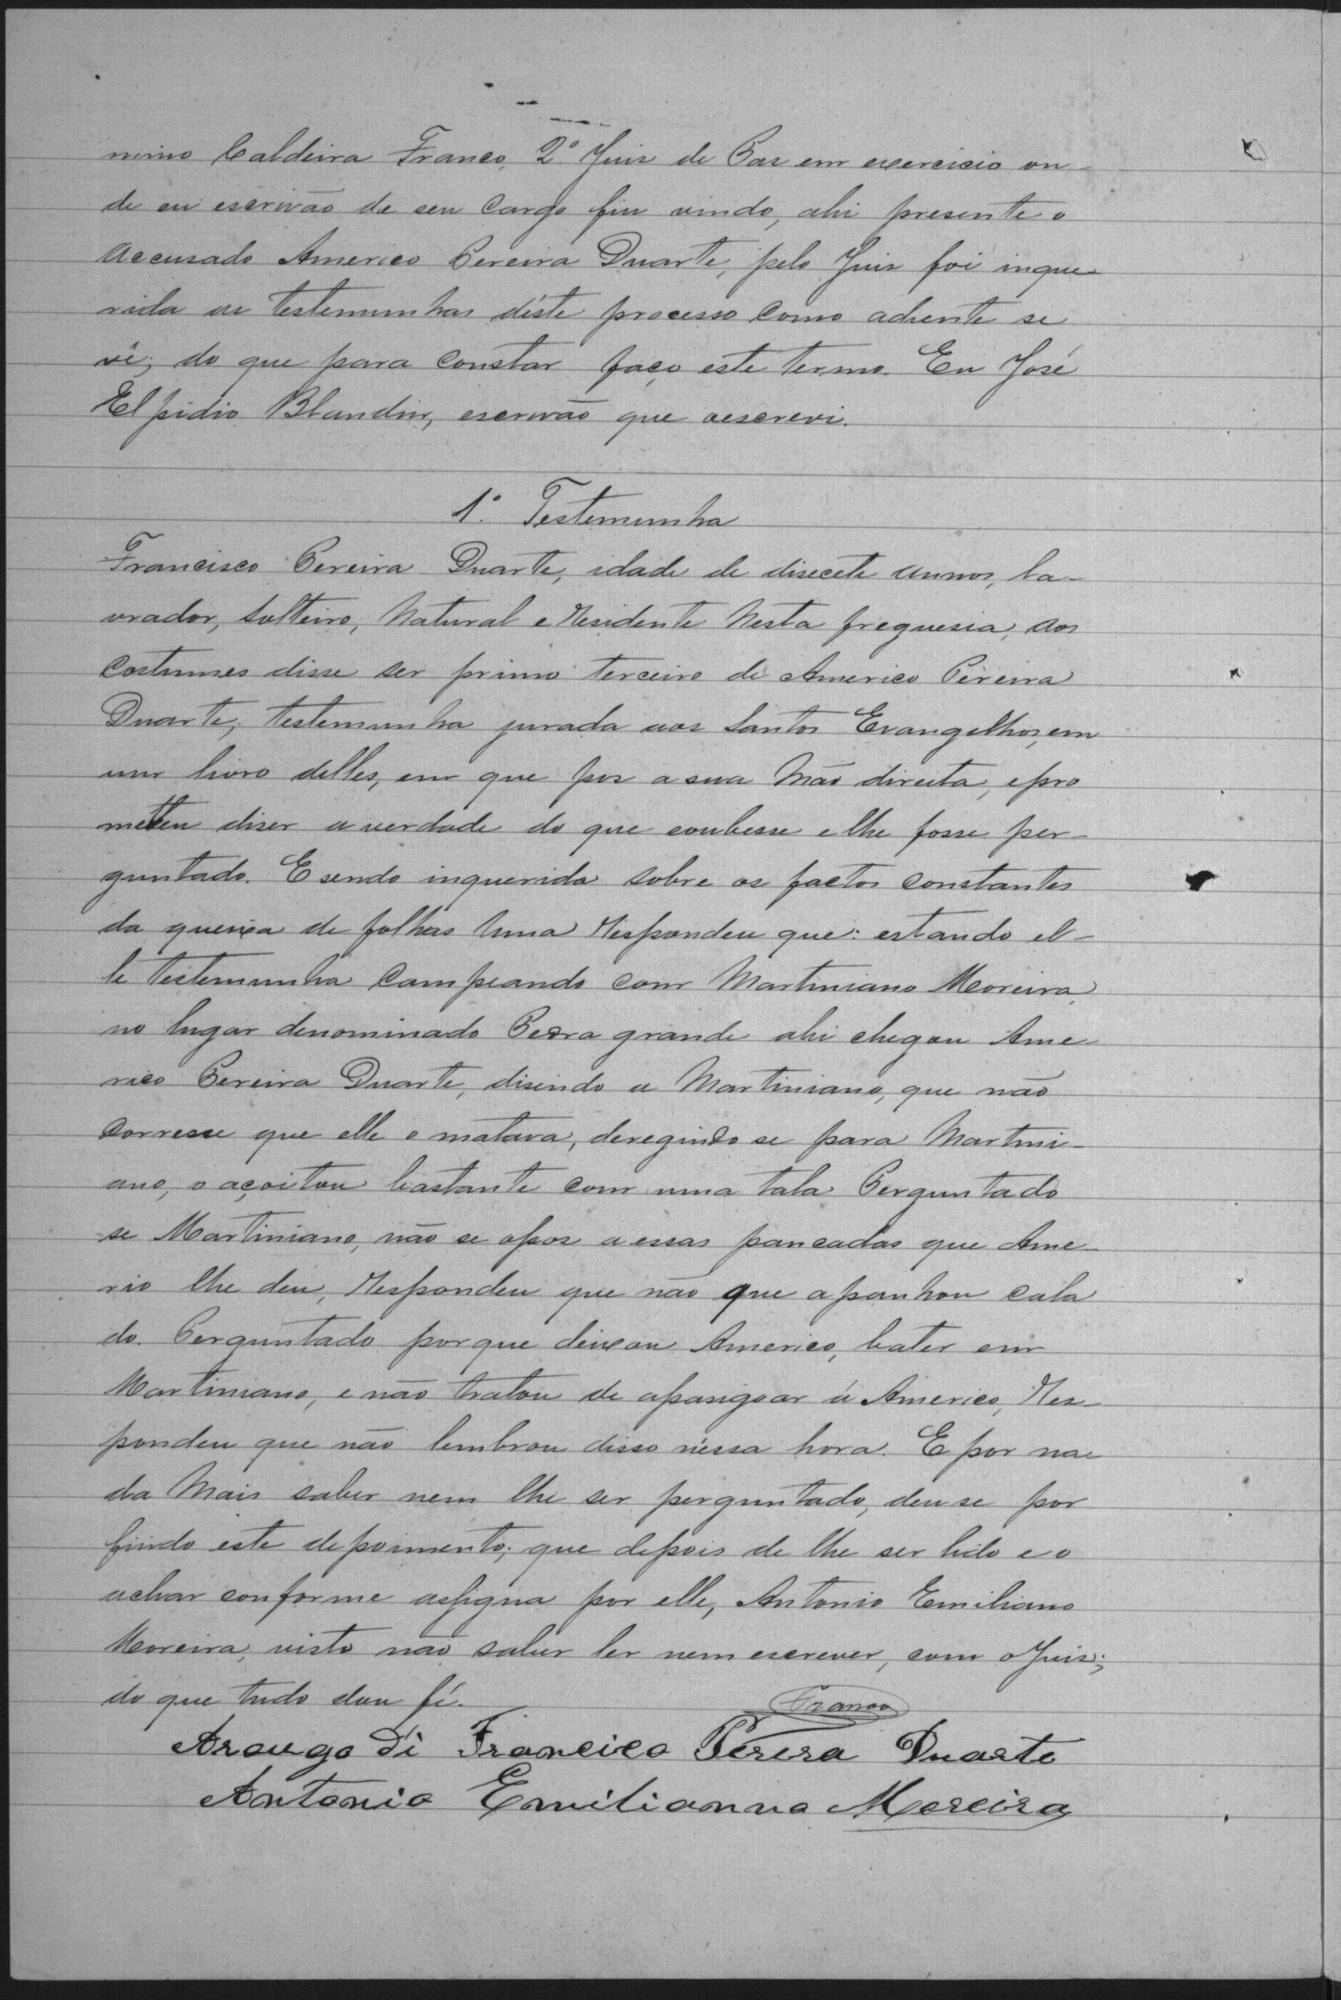 mino Caldeira Franco, 2º Juis de Pas em exercicio on-
de eu escrivão de seu cargo fui vindo, ahi presente o
accusado Americo Pereira Duarte, pelo Juis foi inque-
rida as testemunhas déste processo como adiente se
vê; do que para constar faço este termo. Eu José
Elpidio Blandin, escrivão que oescrevi.
1º Testemunha
Francisco Pereira Duarte, idade de disecete annos, la-
vrador, solteiro, Natural e residente nesta freguesia, aos
costumes disse ser primo terceiro de Americo Pereira
Duarte, testemunha jurada aos Santos Evangelhos, em
um livro delles, em que pos a sua mão direita, epro
metteu diser a verdade do que soubesse e lhe fosse per-
guntado. E sendo inquerida sobre os factos constantes
da queixa de folhas huma respondeu que: estando el-
le testemunha campeando com Martiniano Moreira,
no lugar denominado Pedra grande ahi chegou Ame-
rico Pereira Duarte, disendo a Martiniano, que não
corresse que elle o matava, deregindo se para Martini-
ano, o açoitou bastante com uma tala. Perguntado
se Martiniano, não se opos a essas pancadas que Ame-
rio lhe deu, respondeu que não que apanhou cala
do. Perguntado porque deixou Americo, bater em
Martiniano, e não tratou de apasigoar á Americo, res-
pondeu que não lembrou disso nessa hora. E por na-
da mais saber nem lhe ser perguntado, deu se por
findo este depoimento; que depois de lhe ser lido e o
achar conforme assigna por elle, Antonio Emiliano
Moreira, visto não saber ler nem escrever, com o Juis;
do que tudo dou fé.
Franco
Arougo di Francico Perera Duarte
Antonio Emilianno Moreira